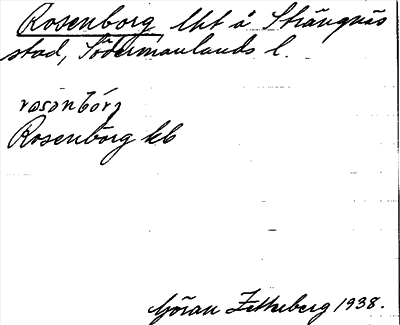 Rosenborg lht å Strängnäs
stad, Södermanlands l.
rosənbórj
Rosenborg kb
Göran Zetterberg 1938.